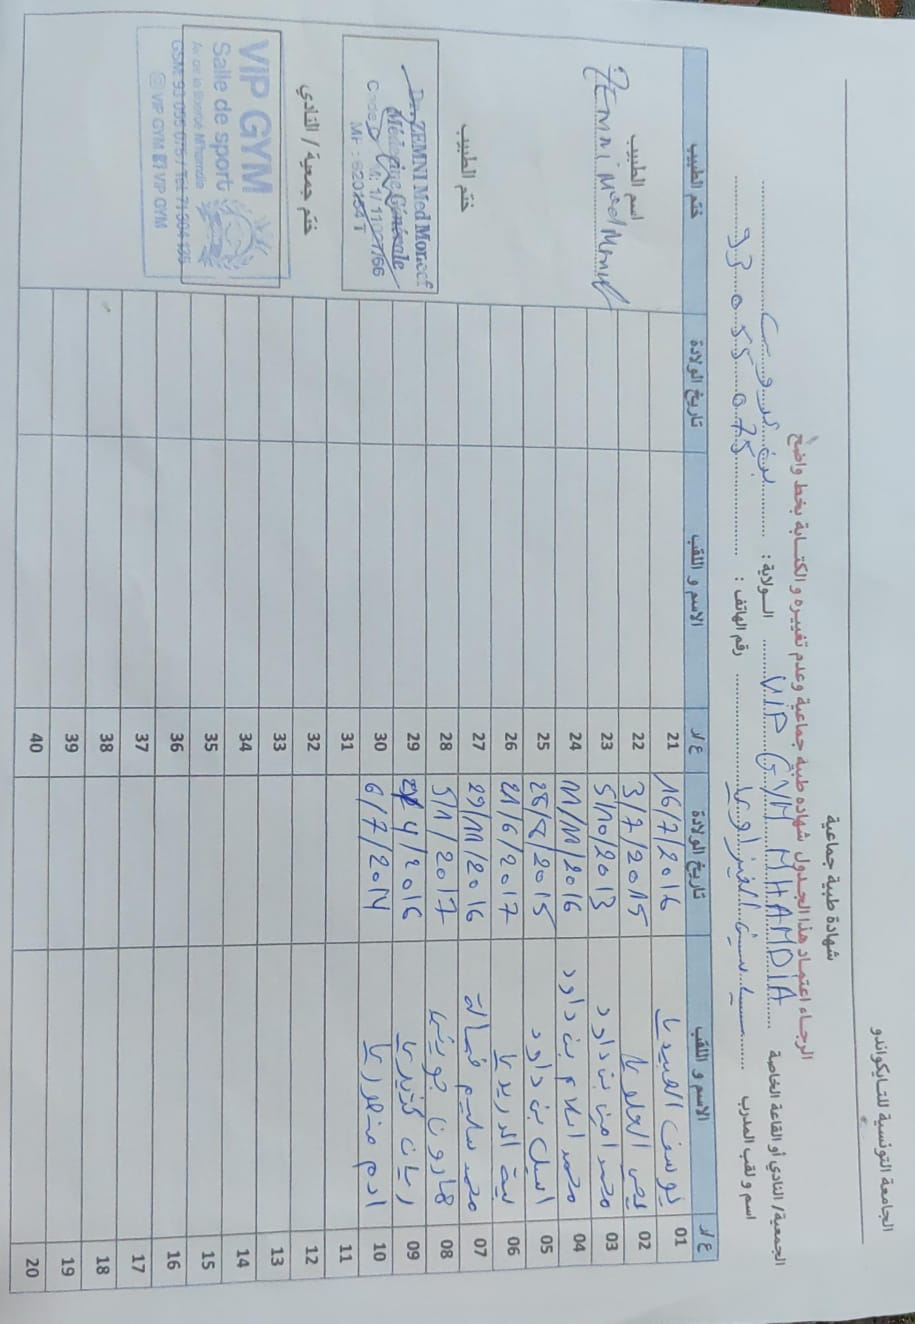 الجامعة التونسية للتايكواندو
شهادة طبية جماعية
الرجاء اعتماد هذا الجدول شهادة طبية جماعية وعدم تغييره و الكتابة بخط واضح
الجمعية/ النادي أو القاعة الخاصة VIP GYM MHAMDIA الولاية : بن عروس
اسم و لقب المدرب رقم الهاتف : 93 055 075
ع/ر الاسم و اللقب تاريخ الولادة ع/ر الاسم و اللقب تاريخ الولادة ختم الطبيب
01 يوسف العبيدي 16/7/2016 21
02 العلوي 3/7/2015 22
03 محمد امين بن داود 5/10/2013 23
04 محمد اسلام بن داود 11/11/2016 24
05 اسيل بن داود 28/8/2015 25
06 الدريدي 21/6/2017 26
07 محمد سليم 29/11/2016 27
08 هارون 5/1/2017 28
09 ريان 4/2016 29
10 ادم منصوري 6/7/2014 30
11 31
12 32
13 33
14 34
15 35
16 36
17 37
18 38
19 39
20 40
اسم الطبيب
ZEMNI Med Moncef
ختم الطبيب
Dr. ZEMNI Med Moncef
Médecine Générale
ختم جمعية / النادي
VIP GYM
Salle de sport
GSM: 93 055 075 / Tel: 71
VIP GYM VIP GYM